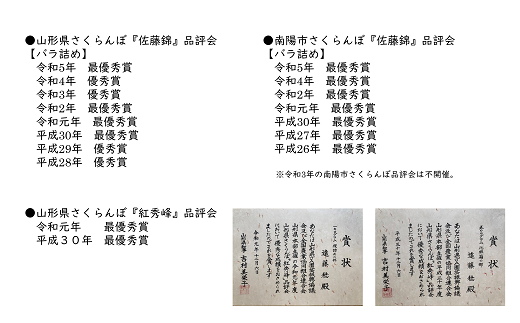 ●山形県さくらんぼ『佐藤錦』品評会
【バラ詰め】
令和5年　最優秀賞
令和4年　優秀賞
令和3年　優秀賞
令和2年　最優秀賞
令和元年　最優秀賞
平成30年　最優秀賞
平成29年　優秀賞
平成28年　優秀賞
●南陽市さくらんぼ『佐藤錦』品評会
【バラ詰め】
令和5年　最優秀賞
令和4年　最優秀賞
令和2年　最優秀賞
令和元年　最優秀賞
平成30年　最優秀賞
平成27年　最優秀賞
平成26年　最優秀賞
※令和3年の南陽市さくらんぼ品評会は不開催。
●山形県さくらんぼ『紅秀峰』品評会
令和元年　　最優秀賞
平成３０年　最優秀賞
賞状
賞状